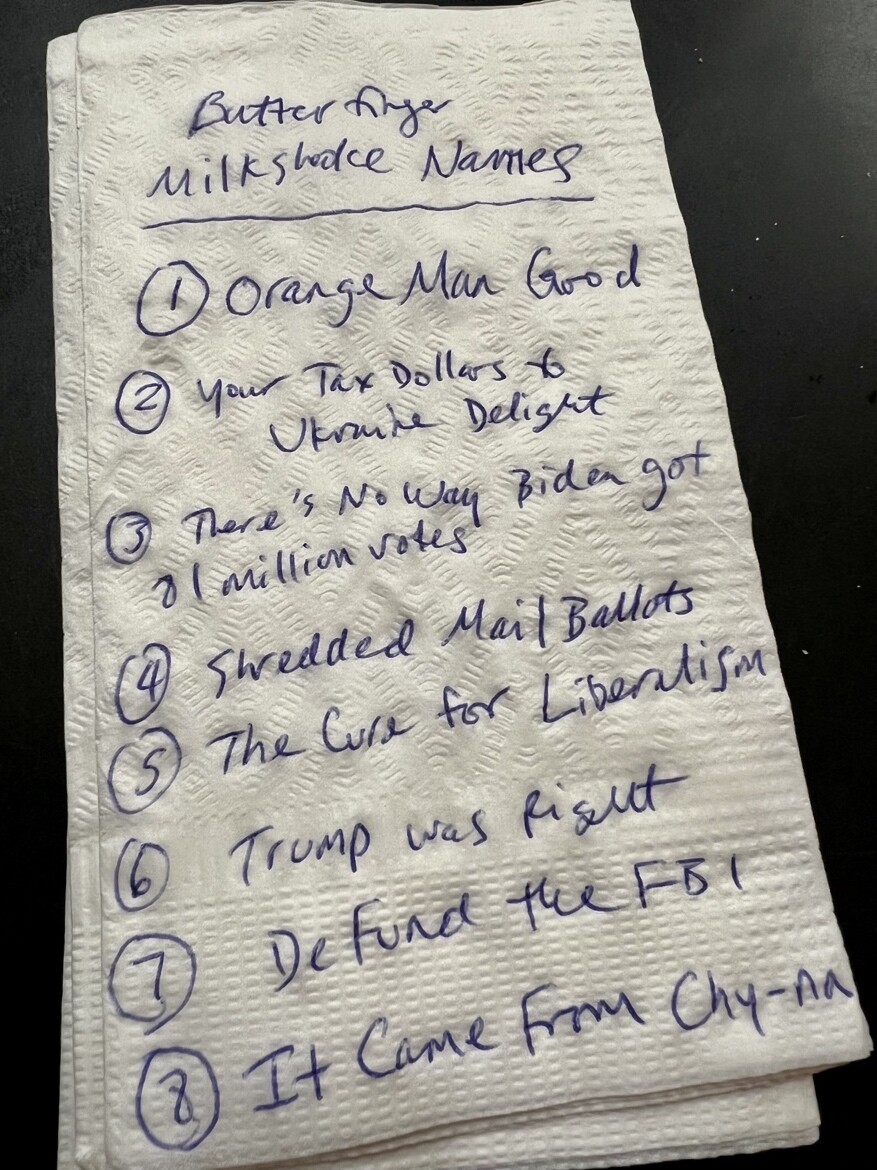 Butterfinger
Milkshake Names
1 Orange Man Good
2 Your Tax Dollars to
Ukraine Delight
3 There's No Way Biden got
81 million votes
4 Shredded Mail Ballots
5 The Cure for Liberalism
6 Trump was Right
7 Defund the FBI
8 It Came From Chy-na